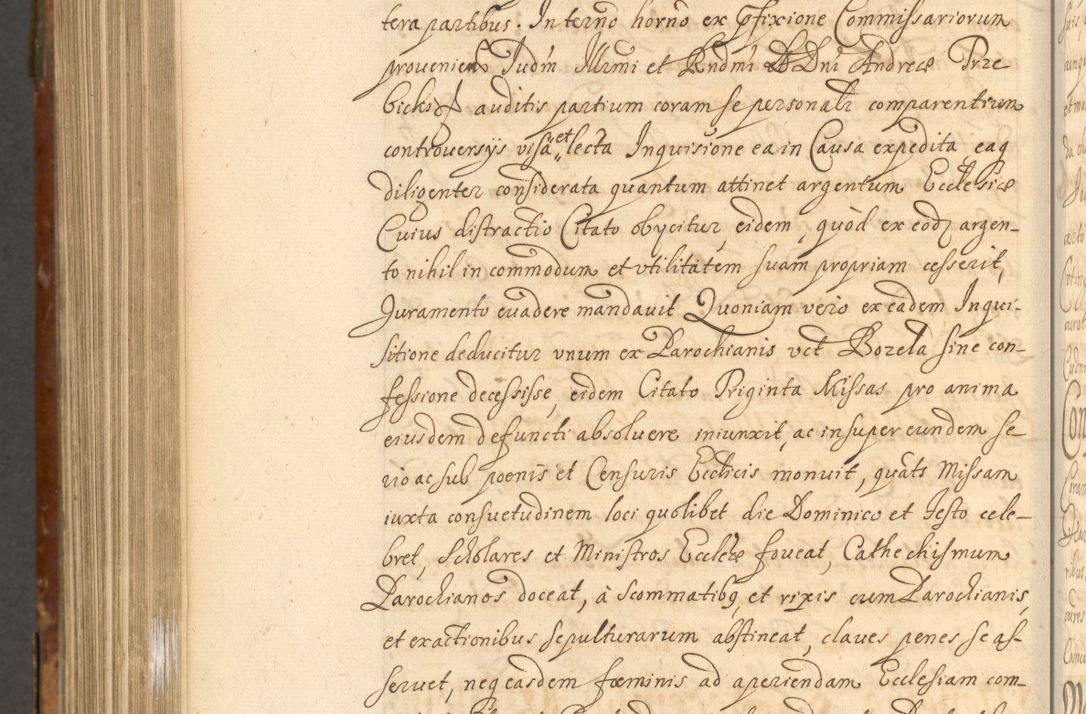 tera partibus. In terno horno ex pfixione Commissariorum
proveniens Judm Illrmi et Rndmi D Dni Andreæ Prze
bicki auditis partium coram se personalr comparentium
controversys visa et lecta Inquisitione ea in Causa expedita eaq
diligenter considerata quantum attinet argentum Ecclesiæ
Cuius distractio Citato obycitur, eidem, quod ex eodz argen-
to nihil in commodum et utilitatem suam propriam cesserit,
Juramento evadere mandavit Quoniam vero ex eadem Inqui-
sitione deducitur unum ex Parochianis vct Bozela sine con-
fessione decessisse, eidem Citato Triginta Missas pro anima
eiusdem defuncti absolvere iniunxit, ac insuper eundem se
rio ac sub poenis et Censuris Ecclicis monuit, quats Missam
iuxta consuetudinem loci quolibet die Dominico et Festo cele-
bret, Scholares et Ministros Eccleiæ foveat, Cathechismum
Parochianos doceat, à scommatibq et rixis cum Parochianis,
et exactionibus sepulturarum abstineat, claves penes se as-
servet, neq easdem foeminis ad aperiendam Ecclesiam com-